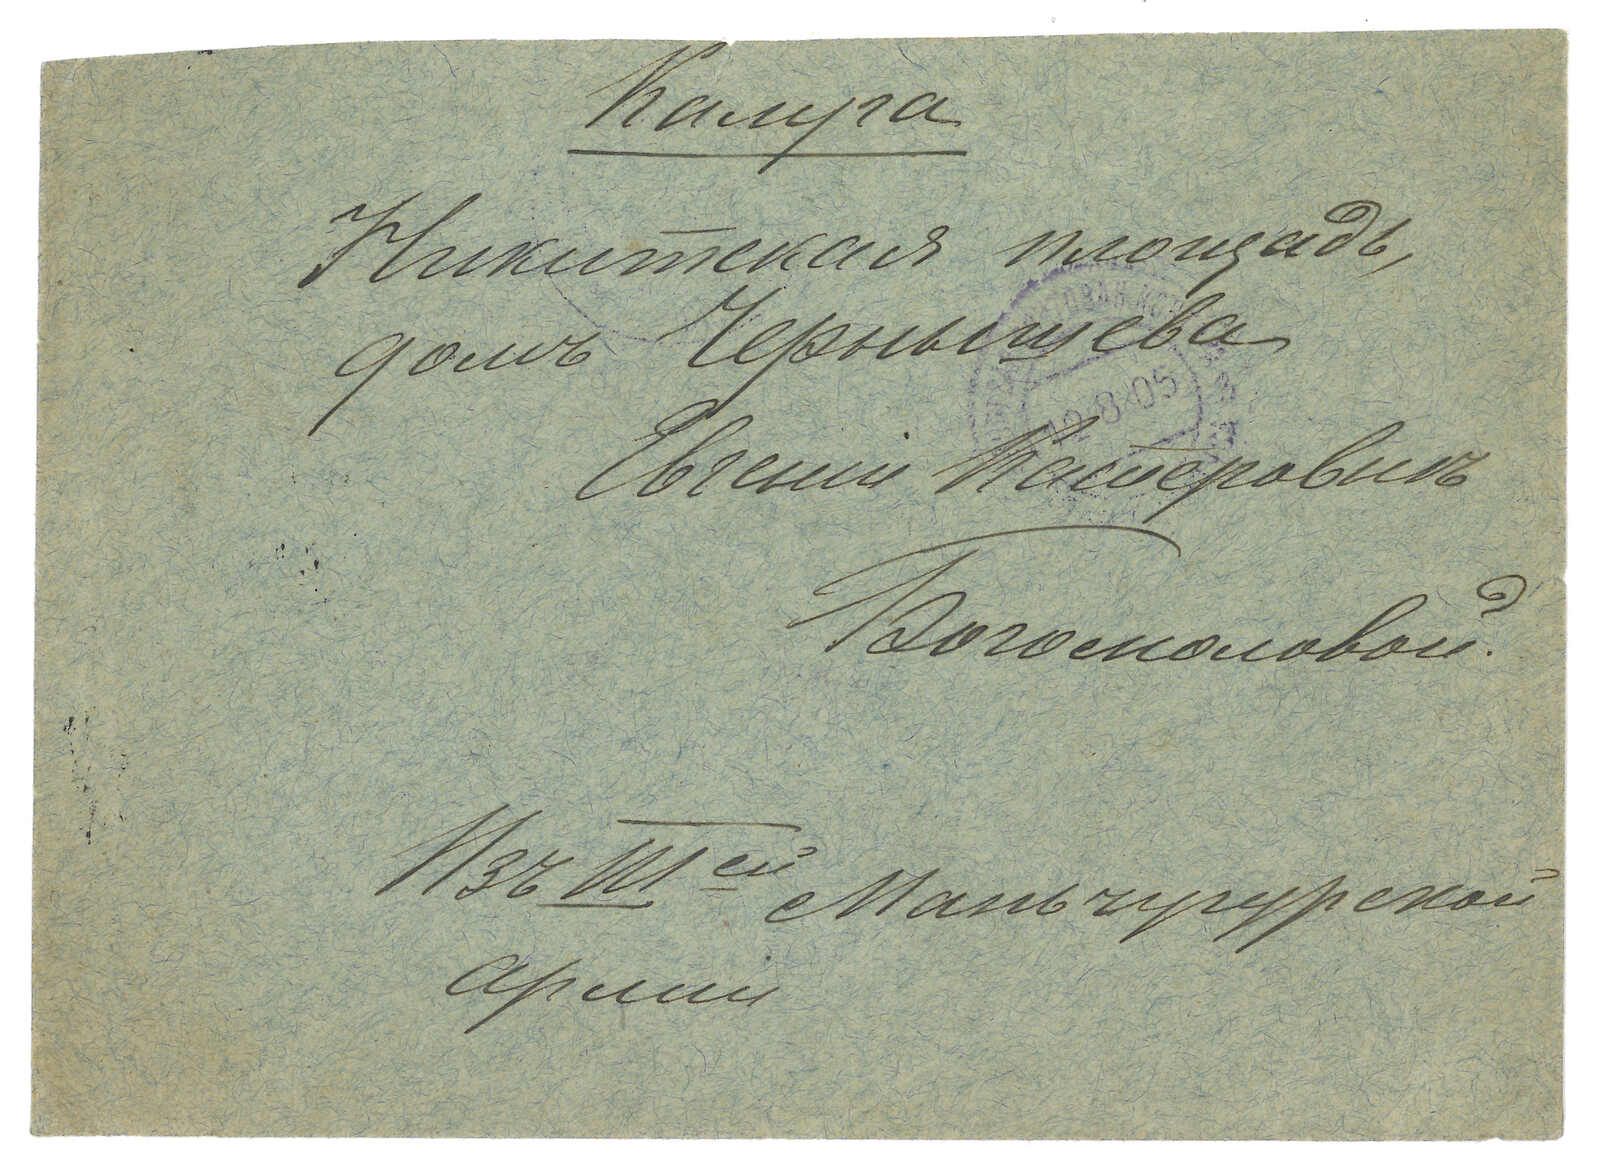 Калуга
Никитская площадь,
домъ Чернышева
Евгеніи Касперовнѣ
Богомоловой.
Изъ III ей Маньчугурской
арміи
12·8·05